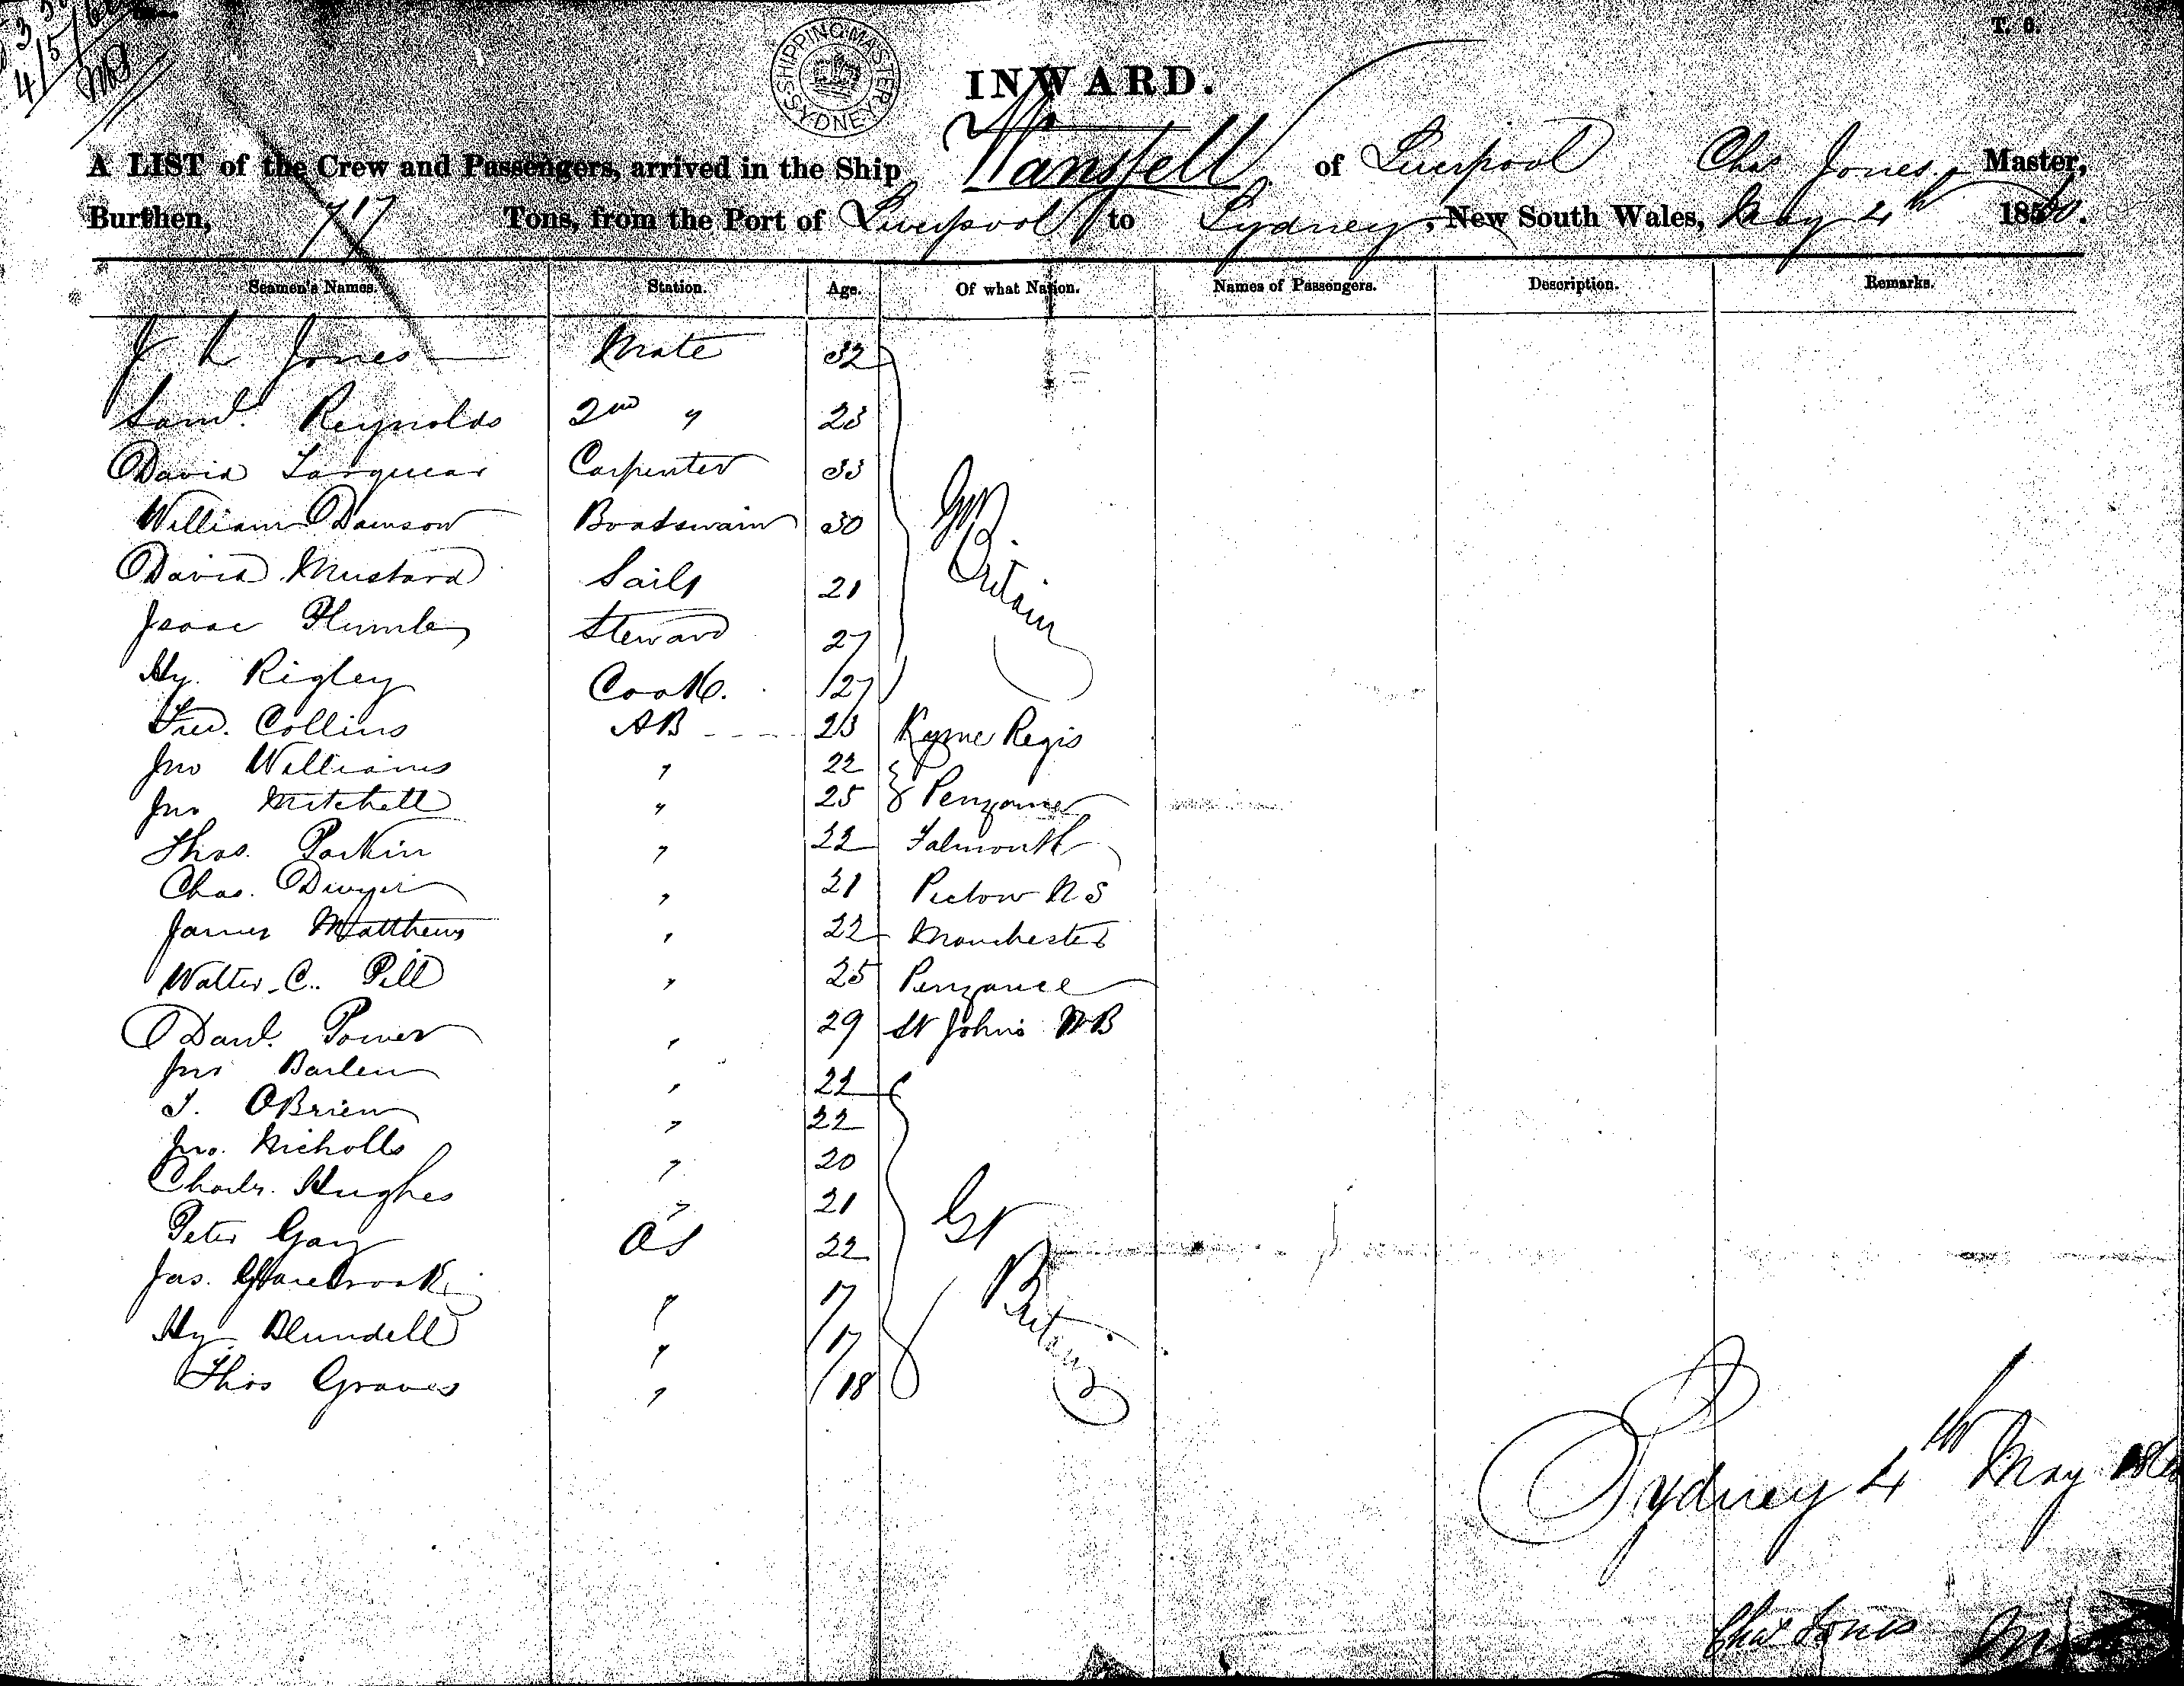 T. O.
SHIPPING MASTER SYDNEY
INWARD.
A LIST of the Crew and Passengers, arrived in the Ship Wansfell of Liverpool Chas Jones, Master,
Burthen, 717 Tons, from the Port of Liverpool to Sydney, New South Wales, May 4th 1860.
Seamen's Names. Station. Age. Of what Nation. Names of Passengers. Description. Remarks.
J L Jones Mate 32
Saml. Reynolds 2nd " 23
David Farquear Carpenter 33
William Dawson Boatswain 30 Gt Britain
David Mustard Sails 21
Isaac Humble Steward 27
Hy. Rigley Cook. 27
Fred. Collins AB 23 Lyme Regis
Jno Williams " 22
Jno Mitchell " 25 Penzance
Thos. Parkin " 22 Falmouth
Chas. Dwyer " 21 Pictow N S
James Matthews " 22 Manchester
Walter C. Pill " 25 Penzance
Danl. Power " 29 St Johns NB
Jno " 22
T. OBrien " 22
Jno. Nicholls " 20
Charls. Hughes " 21 Gt Britain
Peter Gay OS 22
Jas. Glazebrook " 17
Hy Blundell " 17
Thos Graves " 18
Sydney 4th May
Chas Jones